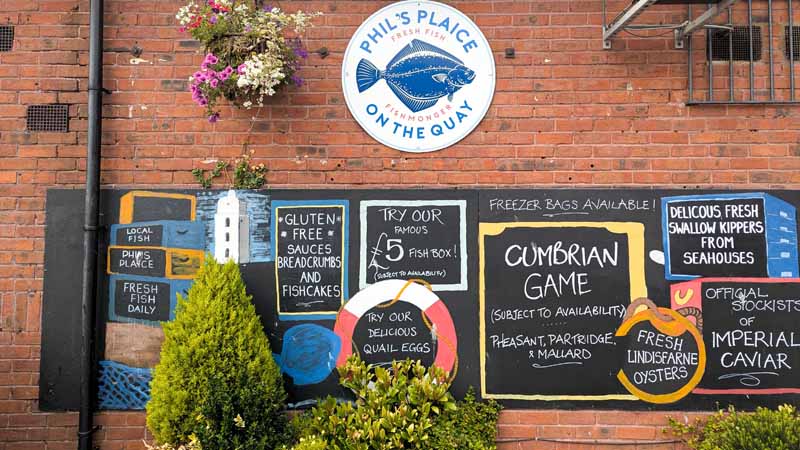 PHIL'S PLAICE
FRESH FISH
FISHMONGER
ON THE QUAY
LOCAL
FISH
PHIL'S
PLAICE
FRESH FISH
DAILY
GLUTEN
FREE
SAUCES
BREADCRUMBS
AND
FISHCAKES
TRY OUR
FAMOUS
£5 FISH BOX!
(SUBJECT TO AVAILABILITY)
TRY OUR
DELICIOUS
QUAIL EGGS
FREEZER BAGS AVAILABLE!
CUMBRIAN
GAME
(SUBJECT TO AVAILABILITY)
PHEASANT, PARTRIDGE,
& MALLARD
DELICOUS FRESH
SWALLOW KIPPERS
FROM
SEAHOUSES
FRESH
LINDISFARNE
OYSTERS
OFFICIAL
STOCKISTS
OF
IMPERIAL
CAVIAR